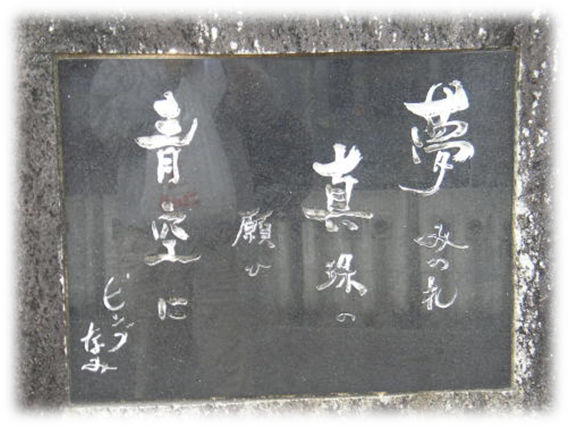 夢みの礼
真珠の
願ひ
青空に
ビング
なみ